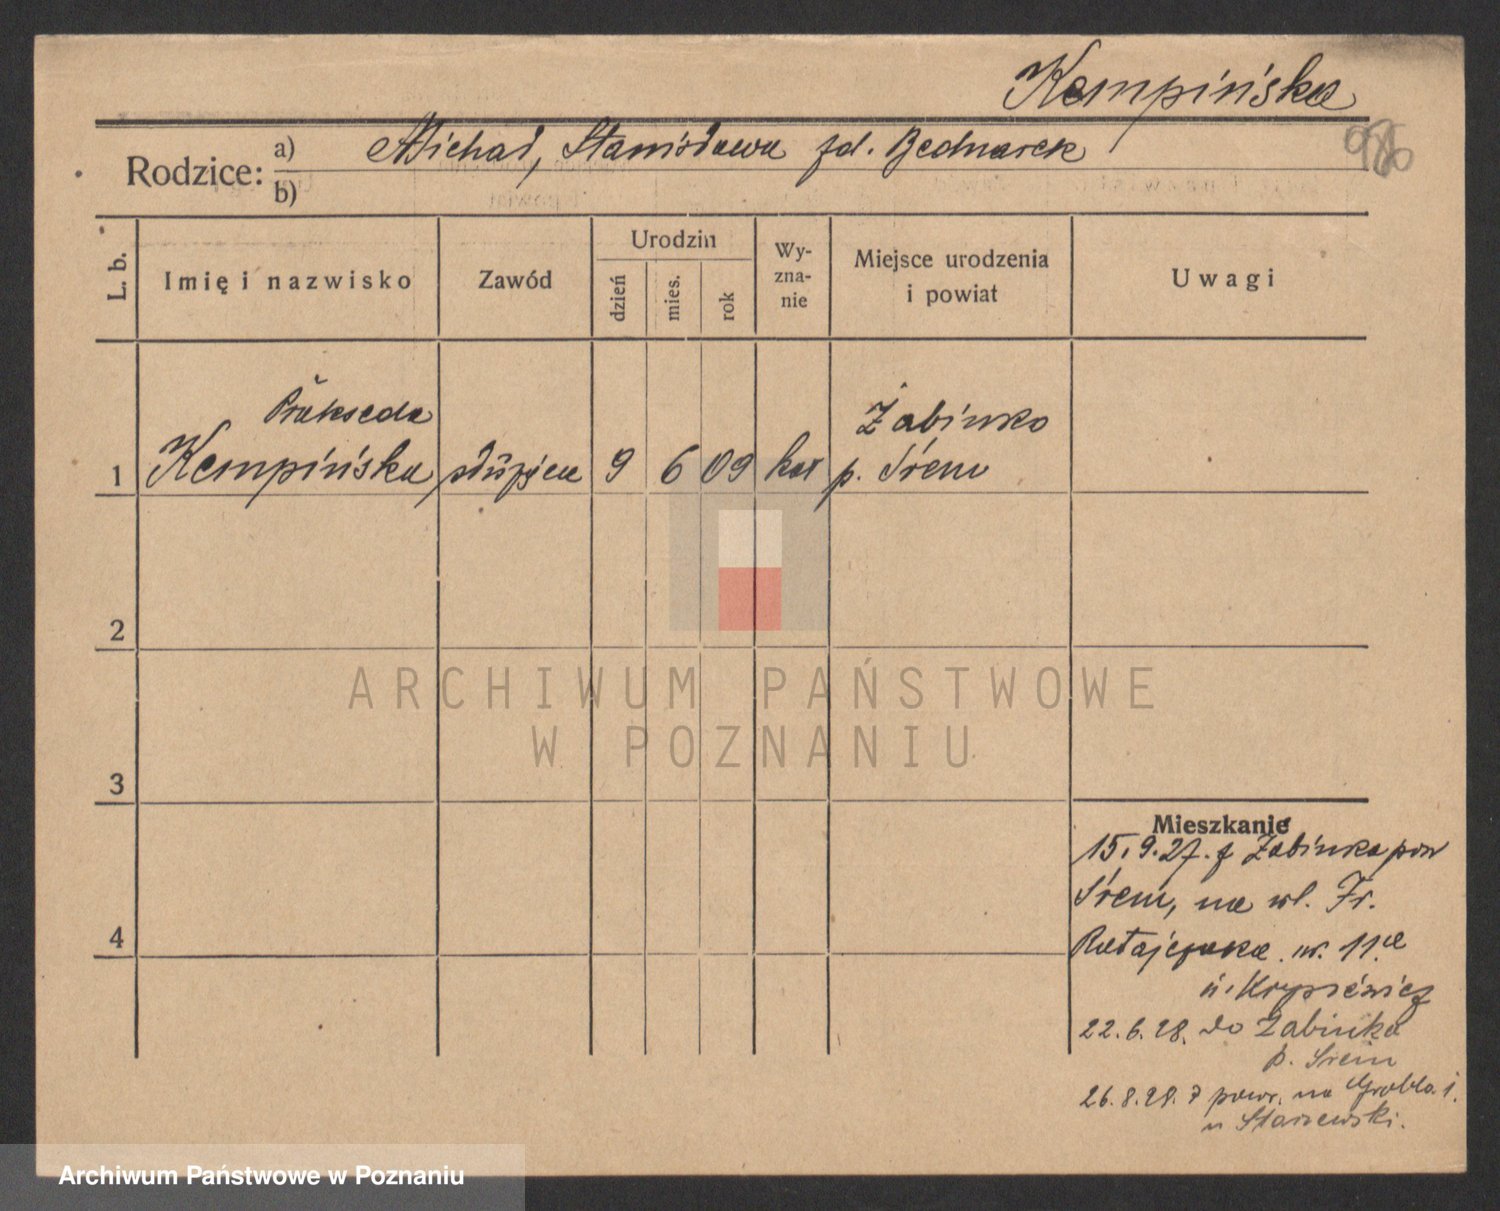 Kempińska
986
Rodzice: a) Michał, Stanisława zd. Bednarek
b)
L. b.
Imię i nazwisko
Zawód
Urodzin
dzień
mies.
rok
Wy-
zna-
nie
Miejsce urodzenia
i powiat
Uwagi
Prakseda
Żabinko
1 Kempińska służąca 9 6 09 kat p. Śrem
2
ARCHIWUM PAŃSTWOWE
W POZNANIU
3
Mieszkanie
15.9.27. z Żabinka pow
Śrem, na ul. Fr.
4
Ratajczaka nr. 11a
22.6.28. do Żabinka
p. Śrem
26.8.28. powr. na Grobla 1.
u Staszewski.
Archiwum Państwowe w Poznaniu